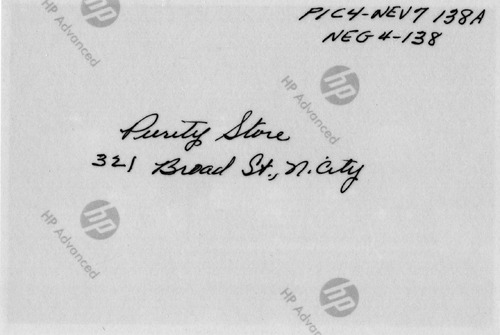 PIC4-NEV7 138A
NEG 4-138
Purity Store
321 Broad St., N. City
hp
HP Advanced
hp
HP Advanced
hp
HP Advanced
hp
HP Advanced